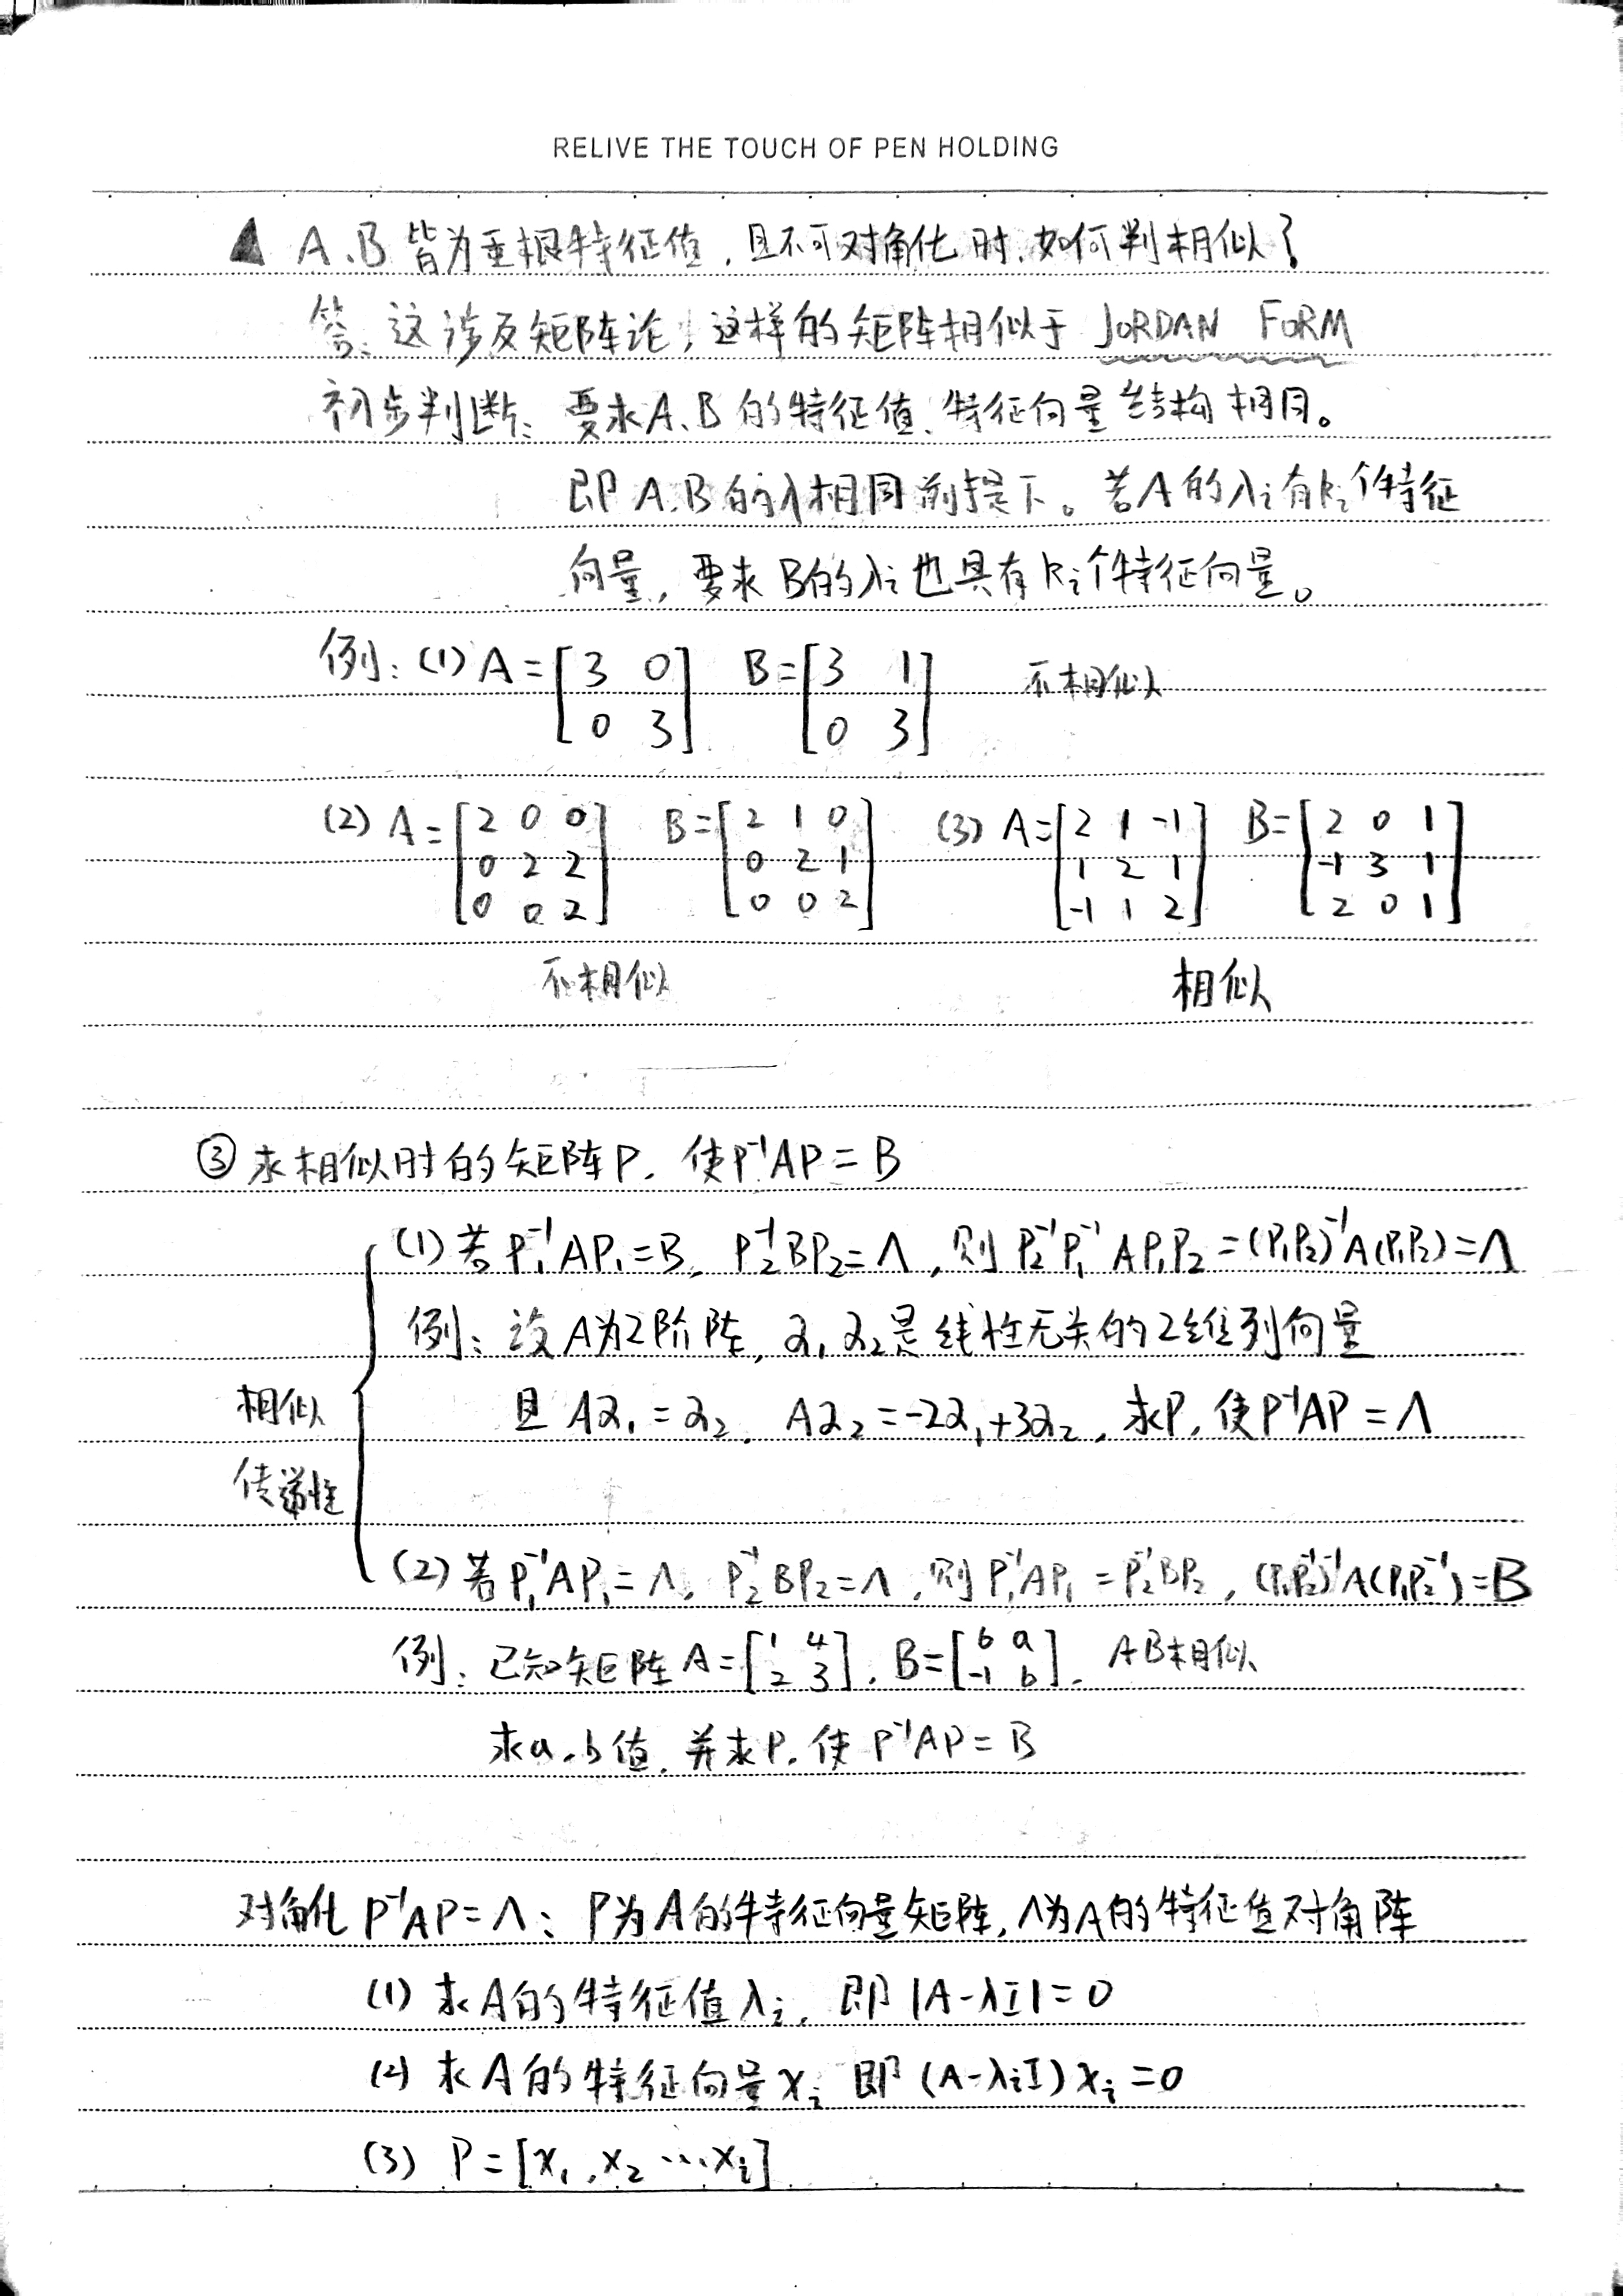 RELIVE THE TOUCH OF PEN HOLDING
▲ A、B皆为重根特征值，且不可对角化时，如何判相似？
答：这涉及矩阵论，这样的矩阵相似于 JORDAN FORM
初步判断：要求A、B的特征值、特征向量结构相同。
即A、B的λ相同前提下。若A的λi有ki个特征
向量，要求B的λi也具有ki个特征向量。
例：(1) A=[3 0; 0 3] B=[3 1; 0 3] 不相似
(2) A=[2 0 0; 0 2 2; 0 0 2] B=[2 1 0; 0 2 1; 0 0 2] (3) A=[2 1 -1; 1 2 1; -1 1 2] B=[2 0 1; -1 3 1; 2 0 1]
不相似 相似
③ 求相似时的矩阵P，使P⁻¹AP=B
(1) 若P₁⁻¹AP₁=B，P₂⁻¹BP₂=Λ，则P₂⁻¹P₁⁻¹AP₁P₂=(P₁P₂)⁻¹A(P₁P₂)=Λ
例：设A为2阶阵，α₁ α₂是线性无关的2维列向量
相似 且Aα₁=α₂，Aα₂=-2α₁+3α₂，求P，使P⁻¹AP=Λ
传递性
(2) 若P₁⁻¹AP₁=Λ，P₂⁻¹BP₂=Λ，则P₁⁻¹AP₁=P₂⁻¹BP₂，(P₁P₂⁻¹)⁻¹A(P₁P₂⁻¹)=B
例：已知矩阵A=[1 4; 2 3]，B=[6 a; -1 b]，AB相似
求a、b值，并求P，使P⁻¹AP=B
对角化P⁻¹AP=Λ：P为A的特征向量矩阵，Λ为A的特征值对角阵
(1) 求A的特征值λi，即|A-λI|=0
(2) 求A的特征向量xi 即(A-λiI)xi=0
(3) P=[x₁,x₂…xi]